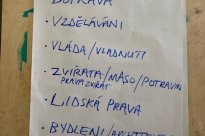 DOPRAVA
• VZDĚLÁVÁNÍ
• VLÁDA/VLADNUTÍ
• ZVÍŘATA/MASO/POTRAVIN
PRÁVA ZVÍŘAT
• LIDSKÁ PRÁVA
• BYDLENÍ/